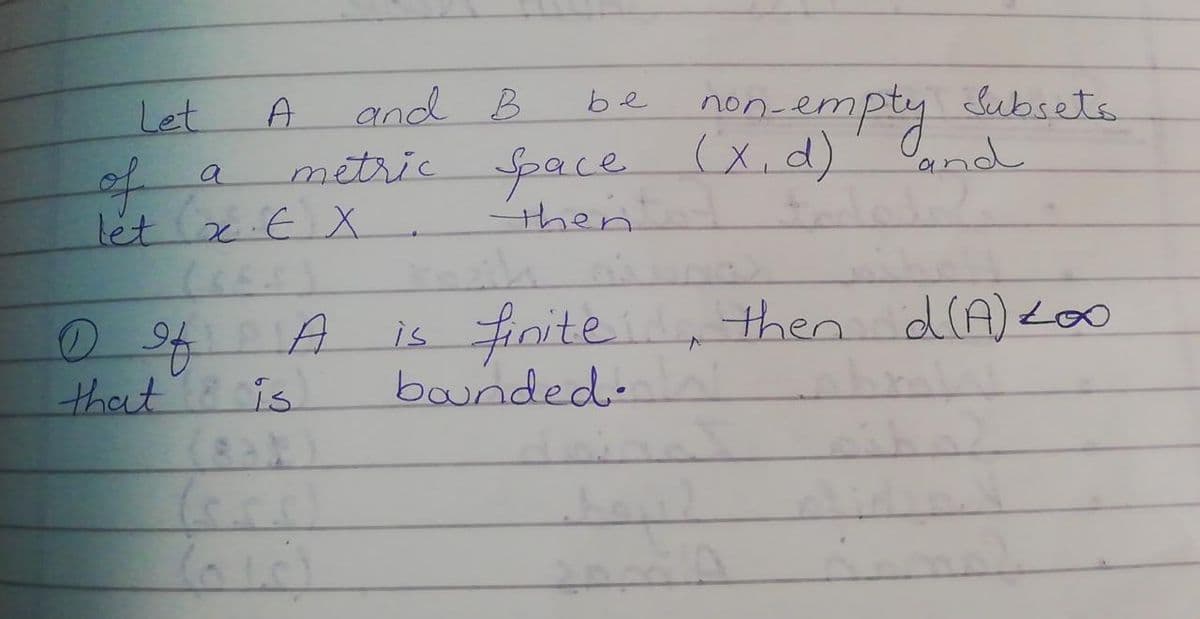 Let A and B be non-empty subsets
of a metric space (X, d) and
let x ∈ X . then
① If A is finite , then d(A) < ∞
that is bounded.